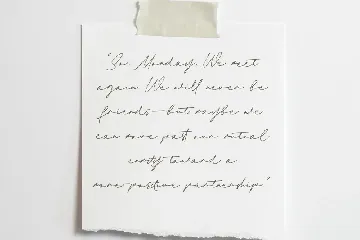 "So, Monday. We met
again. We will never be
friends—but maybe we
can move past our mutual
enmity toward a
more-positive partnership."